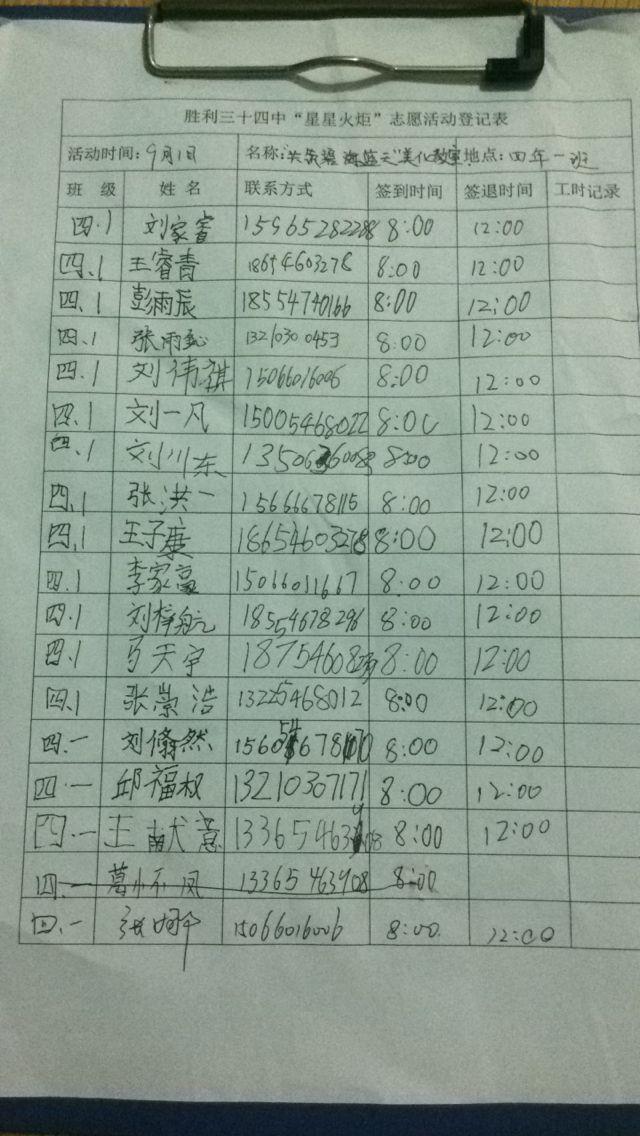 胜利三十四中“星星火炬”志愿活动登记表
活动时间：9月1日 名称：海蓝天"美化教室 地点：四年一班
班 级 姓 名 联系方式 签到时间 签退时间 工时记录
四.1 刘家睿 15965282288 8:00 12:00
四.1 王睿青 18654603278 8:00 12:00
四.1 彭雨辰 18554740166 8:00 12:00
四.1 张雨 13210300453 8:00 12:00
四.1 刘祎祺 15066016006 8:00 12:00
四.1 刘一凡 15005468022 8:00 12:00
四.1 刘川东 8:00 12:00
四.1 张洪一 15666678115 8:00 12:00
四.1 王子康 18654603278 8:00 12:00
四.1 李家富 15066011667 8:00 12:00
四.1 刘梓航 18554678296 8:00 12:00
四.1 天宇 8:00 12:00
四.1 张崇浩 13225468012 8:00 12:00
四.一 刘脩然 8:00 12:00
四.一 邱福权 13210307171 8:00 12:00
四.一 王 8:00 12:00
四.一 葛 凤 13365463908 8:00
四.一 张 15066016006 8:00 12:00